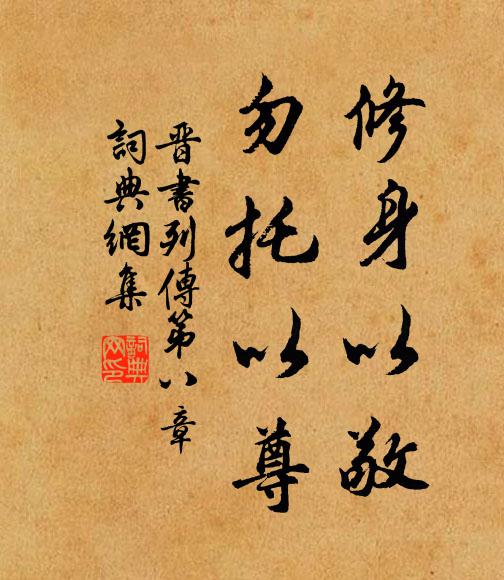 修身以敬
勿托以尊
晋書列傳第八章
詞典網集
詞典
网印